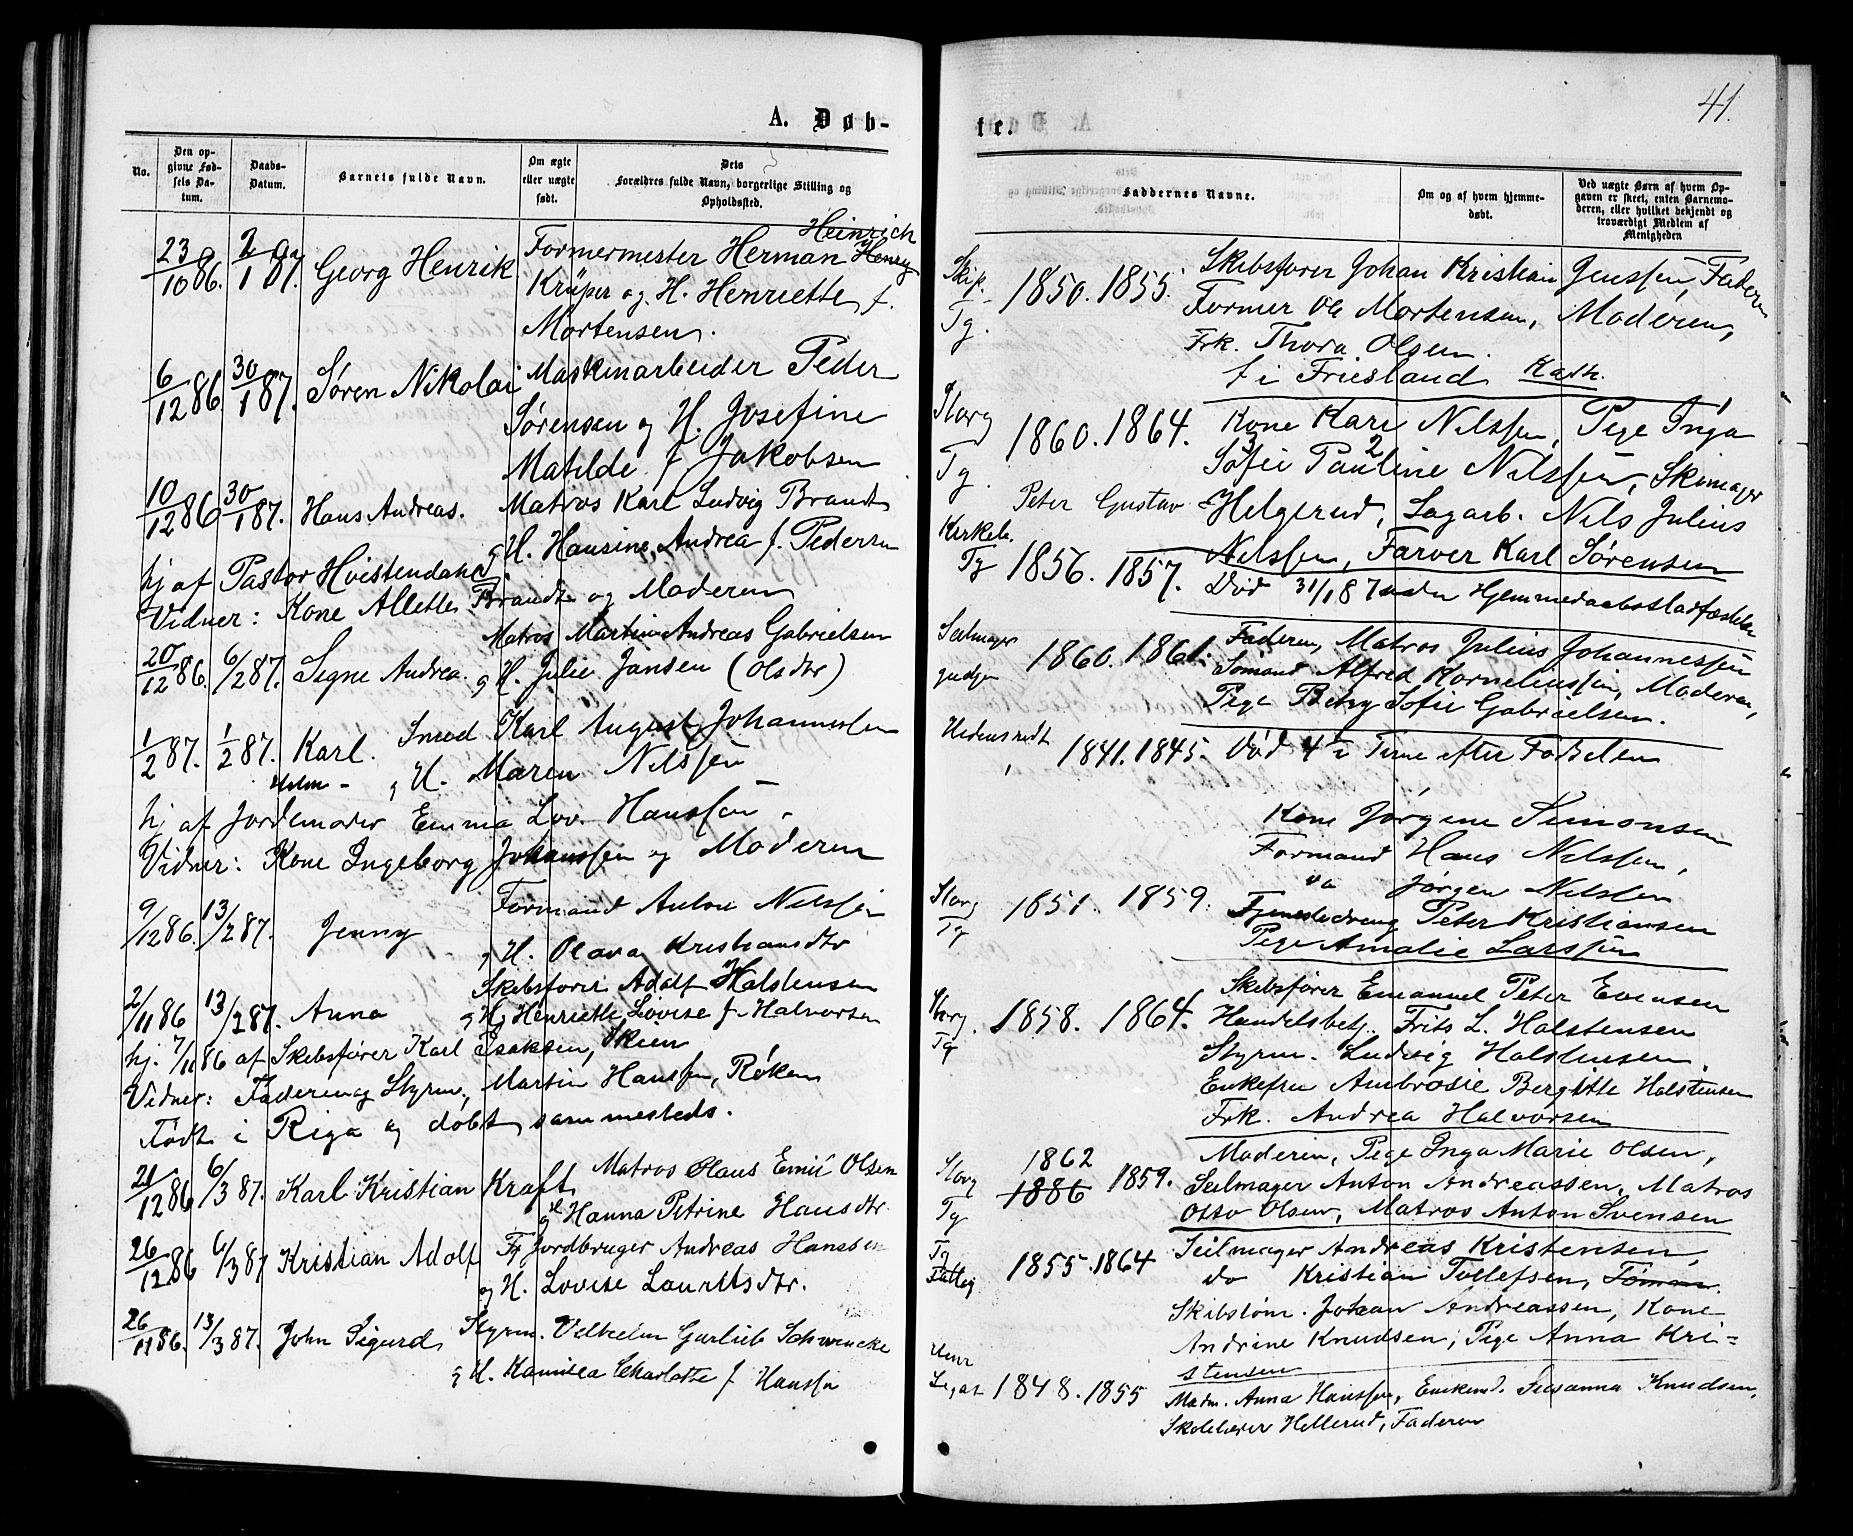 41.
A. Døb-
te.
No.
Den op-
givne Fød-
sels Da-
tum.
Daabs-
Datum.
Barnets fulde Navn.
Om ægte
eller uægte
født.
Dets
Forældres fulde Navn, borgerlige Stilling og
Opholdssted.
Faddernes Navne.
Om og af hvem hjemme-
døbt.
Ved uægte Børn af hvem Op-
gaven er skeet, enten Barnemo-
deren, eller hvilket bekjendt og
troværdigt Medlem af
Menigheden
Heinrich
23/10 86. 2/1 87. Georg Henrik Formermester Herman Henry
Krüper og H. Henriette f.
Mortensen.
6/12 86. 30/1 87. Søren Nikolai Maskinarbeider Peder
Sørensen og H. Josefine
Matilde f Jakobsen
10/12 86 30/1 87. Hans Andreas. Matros Karl Ludvig Brandt
og H. Hansine Andrea f. Pedersen
hj af Pastor Hvistendahl
Vidner: Kone Allette Brandt og Moderen
Matros Martin Andreas Gabrielsen
20/12 86. 6/2 87. Signe Andrea. og H. Julie Jansen (Olsdtr)
1/2 87. 1/2 87. Karl. Smed Karl August Johannessen
og H. Maren Nilssen
hj af Jordemoder Emma Lov. Hanssen.
Vidner: Kone Ingeborg Johanssen og Moderen
9/12 86. 13/2 87. Jenny Formand Anton Nilssen
og H. Olava Kristiansdtr
Skibsfører Adolf Halstensen
2/11 86 13/2 87. Anna og H. Henriette Lovise f. Halvorsen
hj. 7/11 86 af Skibsfører Karl Isaksen, Skien
Vidner: Faderen og Styrm. Martin Hanssen, Røken
Født i Riga og døbt sammesteds.
21/12 86 6/3 87. Karl Kristian Kraft Matros Olaus Emil Olsen
og H Hanna Petrine Hansdtr.
26/12 86 6/3 87 Kristian Adolf Fg Jordbruger Andreas Hanssen
og H. Lovise Lauritsdtr.
26/11 86. 13/3 87. John Sigurd Styrm. Vilhelm Garlieb Schwencke
og H. Kamilla Charlotte f Hanssen
Skip.
Tg.
1850. 1855. Skibsfører Johan Kristian Jenssen, Faderen
Former Ole Mortensen, Moderen,
Frk. Thora Olsen.
f i Friesland Kath.
Storg
Tg.
1860. 1864. Kone Kari Nilssen, Pige Inga
Sofie Pauline Nilssen, Skomager
Peter Gustav Helgerud, Sagarb. Nils Julius
Nilssen, Farver Karl Sørensen
Kirkeb.
Tg
1856. 1857. Død 31/1 87 uden Hjemmedaabsstadfæstelse
Seilmager
gudjen
1860. 1861. Faderen, Matros Julius Johannessen
Sømand Alfred Korneliussen, Moderen,
Pige Betzy Sofie Gabrielsen.
1841. 1845. Død 4 Time efter Fødselen
Kone Jørgine Simonsen
Formand Hans Nilssen,
do Jørgen Nilssen
Storg
Tg
1851. 1859. Tjenestedreng Peter Kristiansen
Pige Amalie Larssen
Skibsfører Emanuel Peter Evensen
Storg.
Tg
1858. 1864. Handelsbetj. Frits L. Halstensen
Styrm. Ludvig Halstensen
Enkefru Ambrosie Bergitte Halstensen
Frk. Andrea Halvorsen
Moderen, Pige Inga Marie Olsen,
Storg
Tg
1862
1886 1859. Seilmager Anton Andreassen, Matros
Otto Olsen, Matros Anton Svensen
Tg
Fattig
1855. 1864 Seilmager Andreas Kristensen,
do Kristian Tollefsen, Tømm.
Skibstøm. Johan Andreassen, Kone
Andrine Knudsen, Pige Anna Kri-
stensen
1848. 1855 Madm. Anna Hanssen, Susanna Knudsen,
Skolelærer Hellerud, Faderen